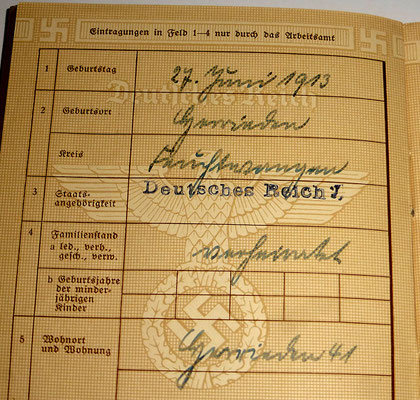 Eintragungen in Feld 1–4 nur durch das Arbeitsamt
1 Geburtstag 27. Juni 1913
Deutsches Reich
2 Geburtsort Herrieden
Kreis Feuchtwangen
3 Staats-
angehörigkeit Deutsches Reich J.
4 Familienstand
a led., verh.,
gesch., verw. verheiratet
b Geburtsjahre
der minder-
jährigen
Kinder
5 Wohnort
und Wohnung Herrieden 41